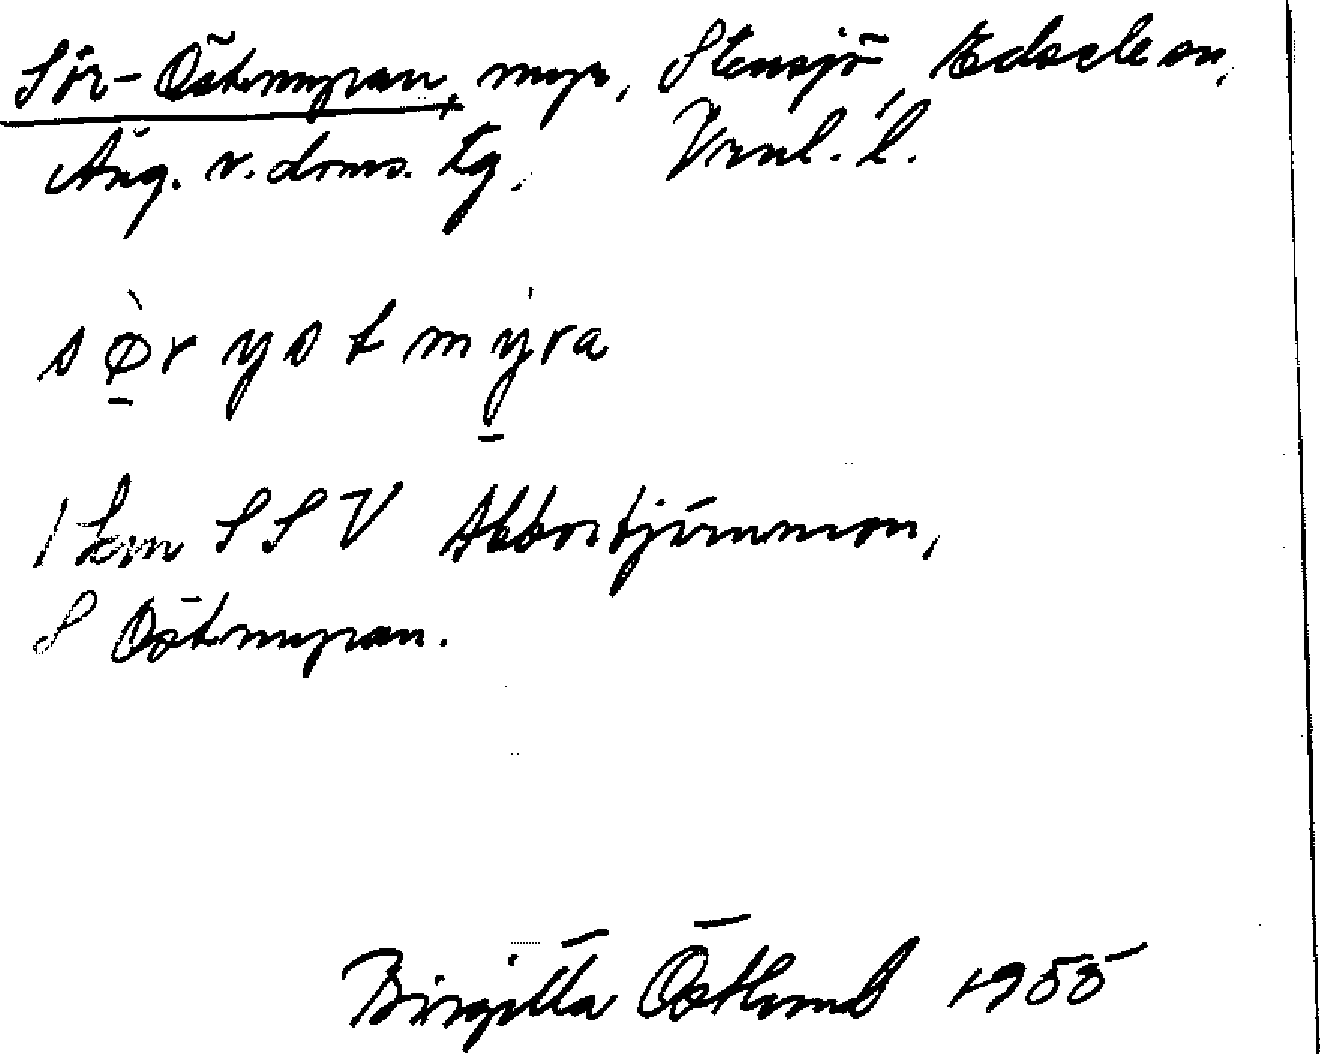 Sör-Östmyran, myr, Stensjö, Edsele sn,
Ång. v. doms. tg, Vrnl. l.
sør yst myra
1 km SSV Abbortjärnmon,
S Östmyran.
Birgitta Östlund 1955